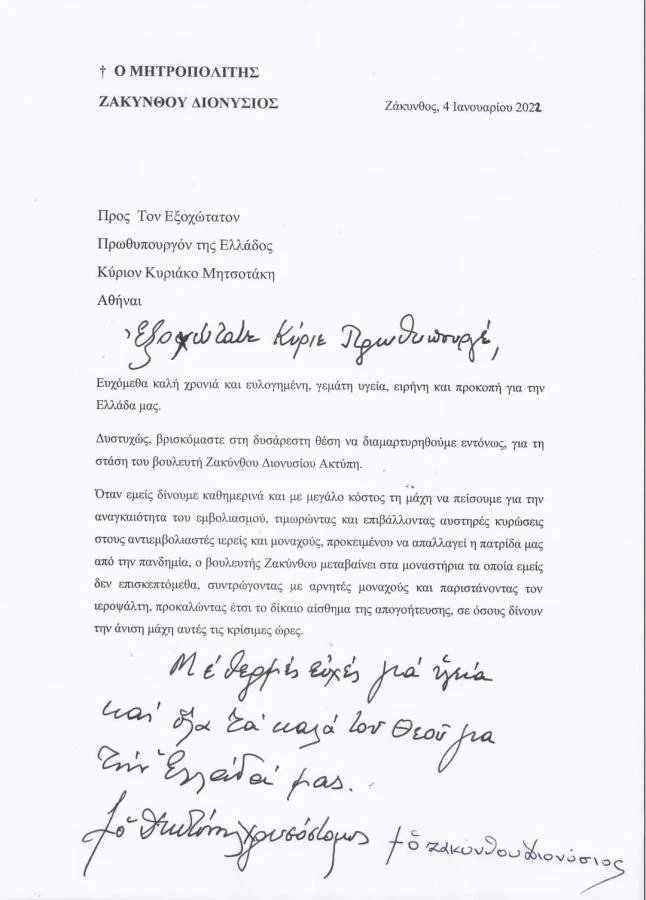 † Ο ΜΗΤΡΟΠΟΛΙΤΗΣ
ΖΑΚΥΝΘΟΥ ΔΙΟΝΥΣΙΟΣ
Ζάκυνθος, 4 Ιανουαρίου 2022
Προς Τον Εξοχώτατον
Πρωθυπουργόν της Ελλάδος
Κύριον Κυριάκο Μητσοτάκη
Αθήναι
Ἐξοχώτατε Κύριε Πρωθυπουργέ,
Ευχόμεθα καλή χρονιά και ευλογημένη, γεμάτη υγεία, ειρήνη και προκοπή για την
Ελλάδα μας.
Δυστυχώς, βρισκόμαστε στη δυσάρεστη θέση να διαμαρτυρηθούμε εντόνως, για τη
στάση του βουλευτή Ζακύνθου Διονυσίου Ακτύπη.
Όταν εμείς δίνουμε καθημερινά και με μεγάλο κόστος τη μάχη να πείσουμε για την
αναγκαιότητα του εμβολιασμού, τιμωρώντας και επιβάλλοντας αυστηρές κυρώσεις
στους αντιεμβολιαστές ιερείς και μοναχούς, προκειμένου να απαλλαγεί η πατρίδα μας
από την πανδημία, ο βουλευτής Ζακύνθου μεταβαίνει στα μοναστήρια τα οποία εμείς
δεν επισκεπτόμεθα, συντρώγοντας με αρνητές μοναχούς και παριστάνοντας τον
ιεροψάλτη, προκαλώντας έτσι το δίκαιο αίσθημα της απογοήτευσης, σε όσους δίνουν
την άνιση μάχη αυτές τις κρίσιμες ώρες.
Μέ θερμές εὐχές γιά ὑγεία
καί ὅλα τά καλά τοῦ Θεοῦ για
τήν Ἑλλάδα μας.
† ὁ Χρυσόστομος
† ὁ Ζακύνθου Διονύσιος